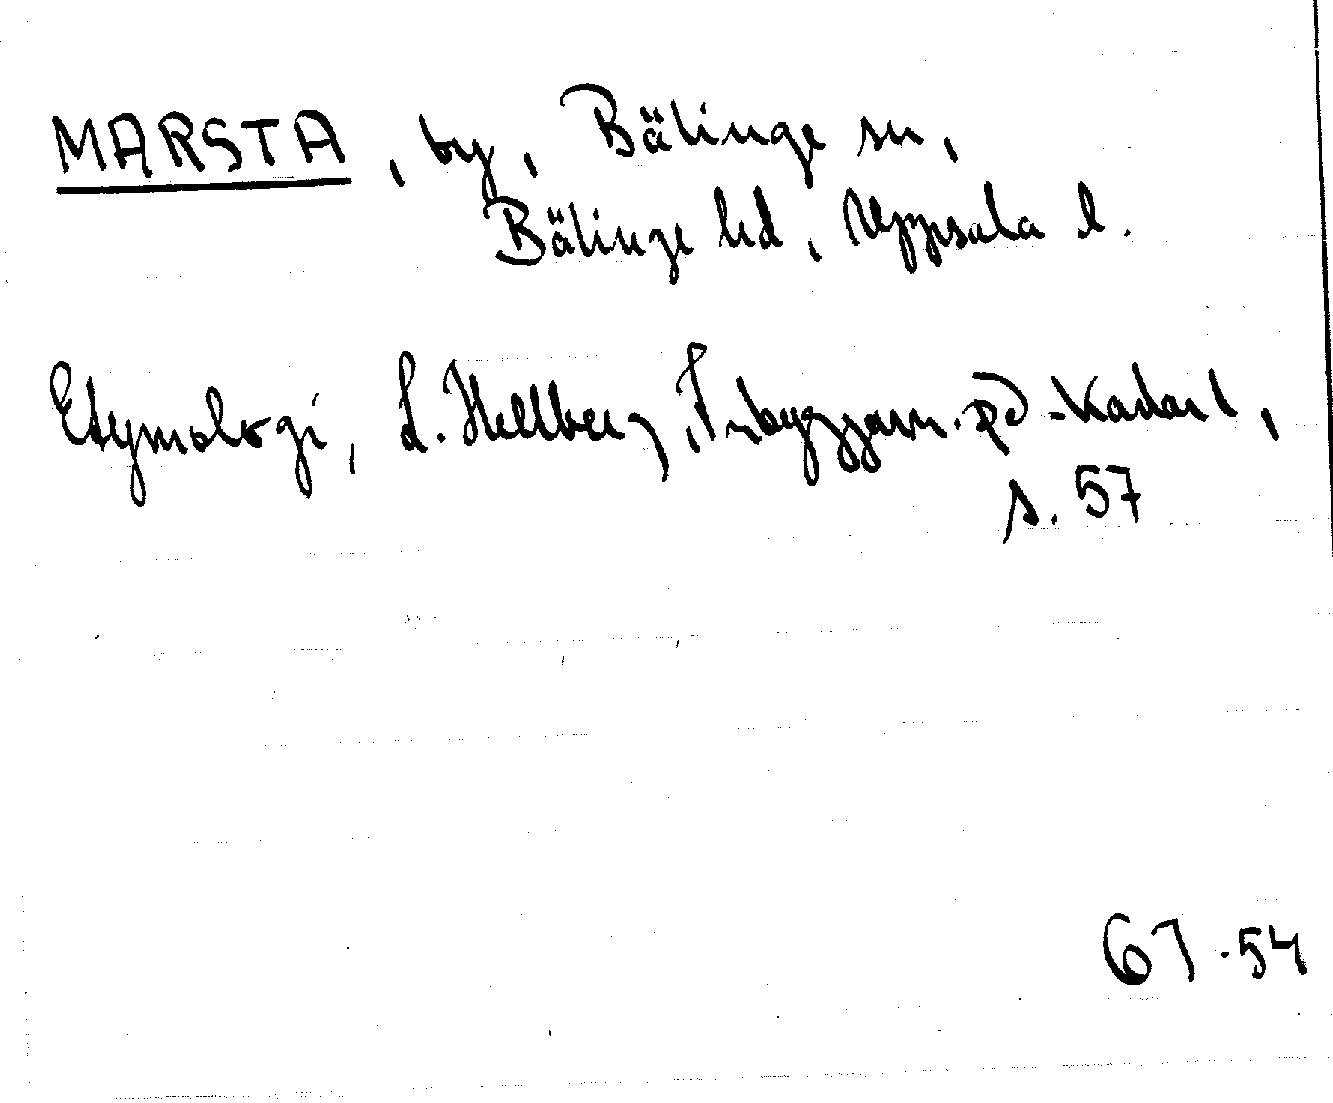 MARSTA, by, Bälinge sn,
Bälinge hd, Uppsala l.
Etymologi, L. Hellberg, Inbyggarn. på -karlar I,
s. 57
GJ -54